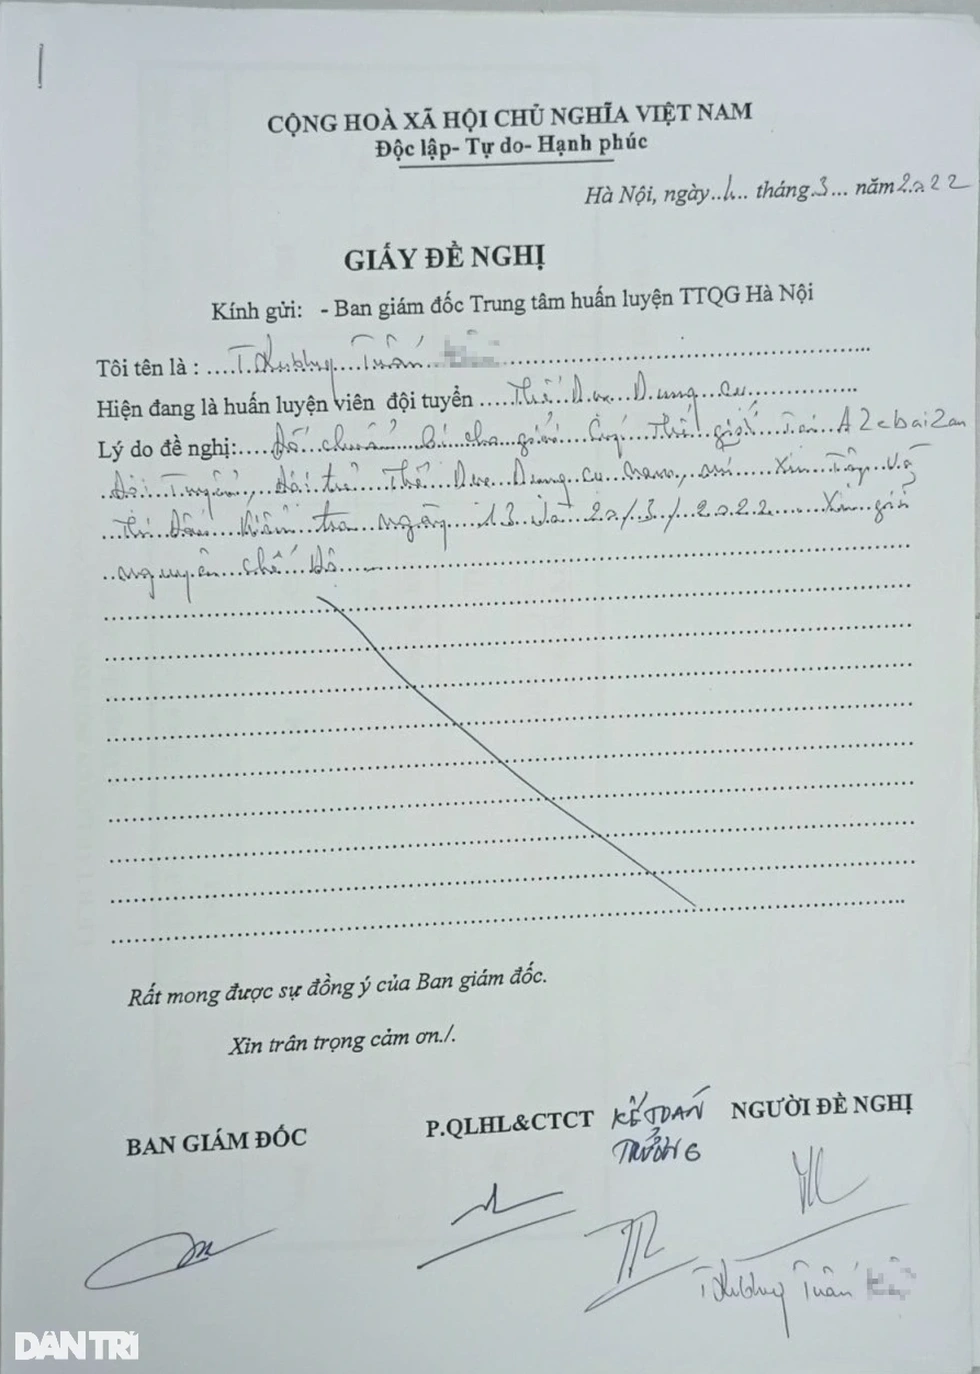 CỘNG HOÀ XÃ HỘI CHỦ NGHĨA VIỆT NAM
Độc lập- Tự do- Hạnh phúc
Hà Nội, ngày.. tháng.3... năm2022
GIẤY ĐỀ NGHỊ
Kính gửi: - Ban giám đốc Trung tâm huấn luyện TTQG Hà Nội
Tôi tên là : Tuấn
Hiện đang là huấn luyện viên đội tuyển Thể Dục Dụng cụ
Lý do đề nghị: Để chuẩn bị cho giải Cúp Thế giới Tại AZebaizan
Đội Tuyển, Đội trẻ Thể Dục Dụng cụ nam, Xin Tập Và
Thi Đấu Kiểm tra ngày 13 Và 20/3/2022 Xin giữ
nguyên chế Độ
Rất mong được sự đồng ý của Ban giám đốc.
Xin trân trọng cảm ơn./.
BAN GIÁM ĐỐC P.QLHL&CTCT KẾ TOÁN NGƯỜI ĐỀ NGHỊ
TRƯỞNG
Tuấn
DÂN TRÍ